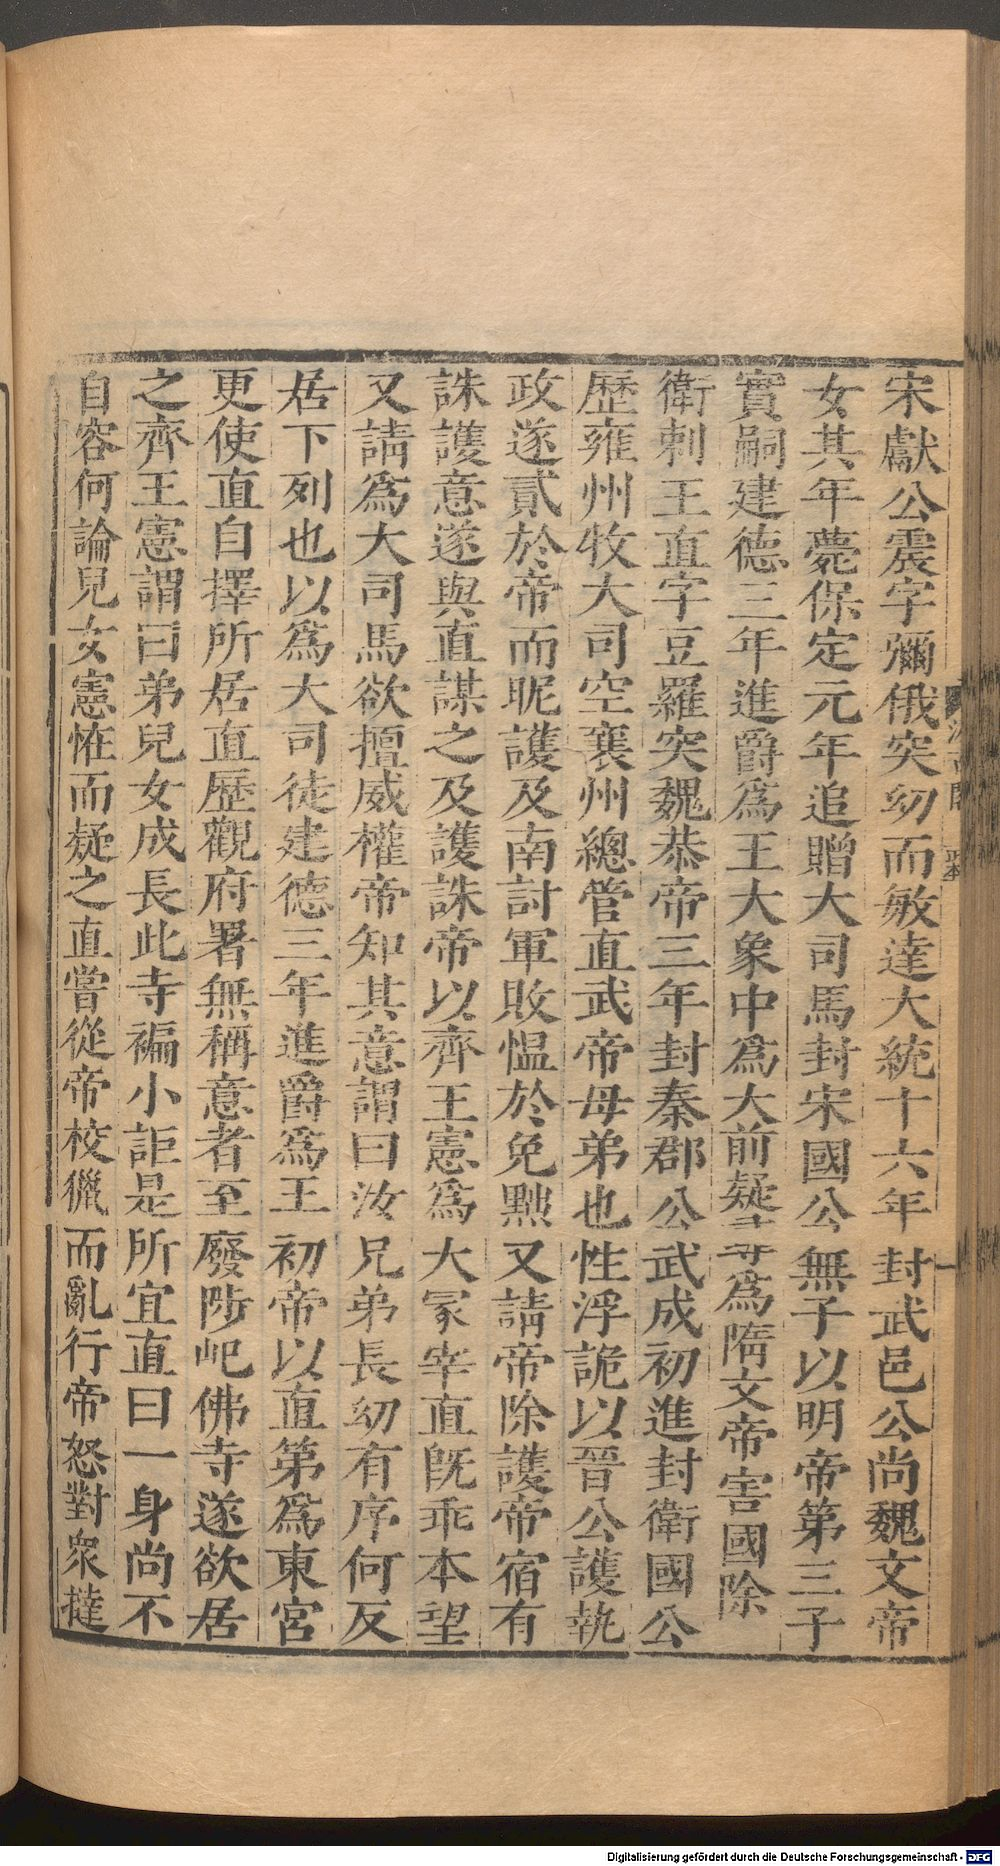 宋獻公震字彌俄突幼而敏達大統十六年封武邑公尚魏文帝
女其年薨保定元年追贈大司馬封宋國公無子以明帝第三子
實嗣建德三年進爵爲王大象中爲大前疑尋爲隋文帝害國除
衛剌王直字豆羅突魏恭帝三年封秦郡公武成初進封衛國公
歷雍州牧大司空襄州總管直武帝母弟也性浮詭以晉公護執
政遂貳於帝而昵護及南討軍敗愠於免黜又請帝除護帝宿有
誅護意遂與直謀之及護誅帝以齊王憲爲大冢宰直旣乖本望
又請爲大司馬欲擅威權帝知其意謂曰汝兄弟長幼有序何反
居下列也以爲大司徒建德三年進爵爲王初帝以直第爲東宮
更使直自擇所居直歷觀府署無稱意者至廢陟屺佛寺遂欲居
之齊王憲謂曰弟兒女成長此寺褊小詎是所宜直曰一身尚不
自容何論兒女憲恠而疑之直嘗從帝校獵而亂行帝怒對衆撻
Digitalisierung gefördert durch die Deutsche Forschungsgemeinschaft - DFG